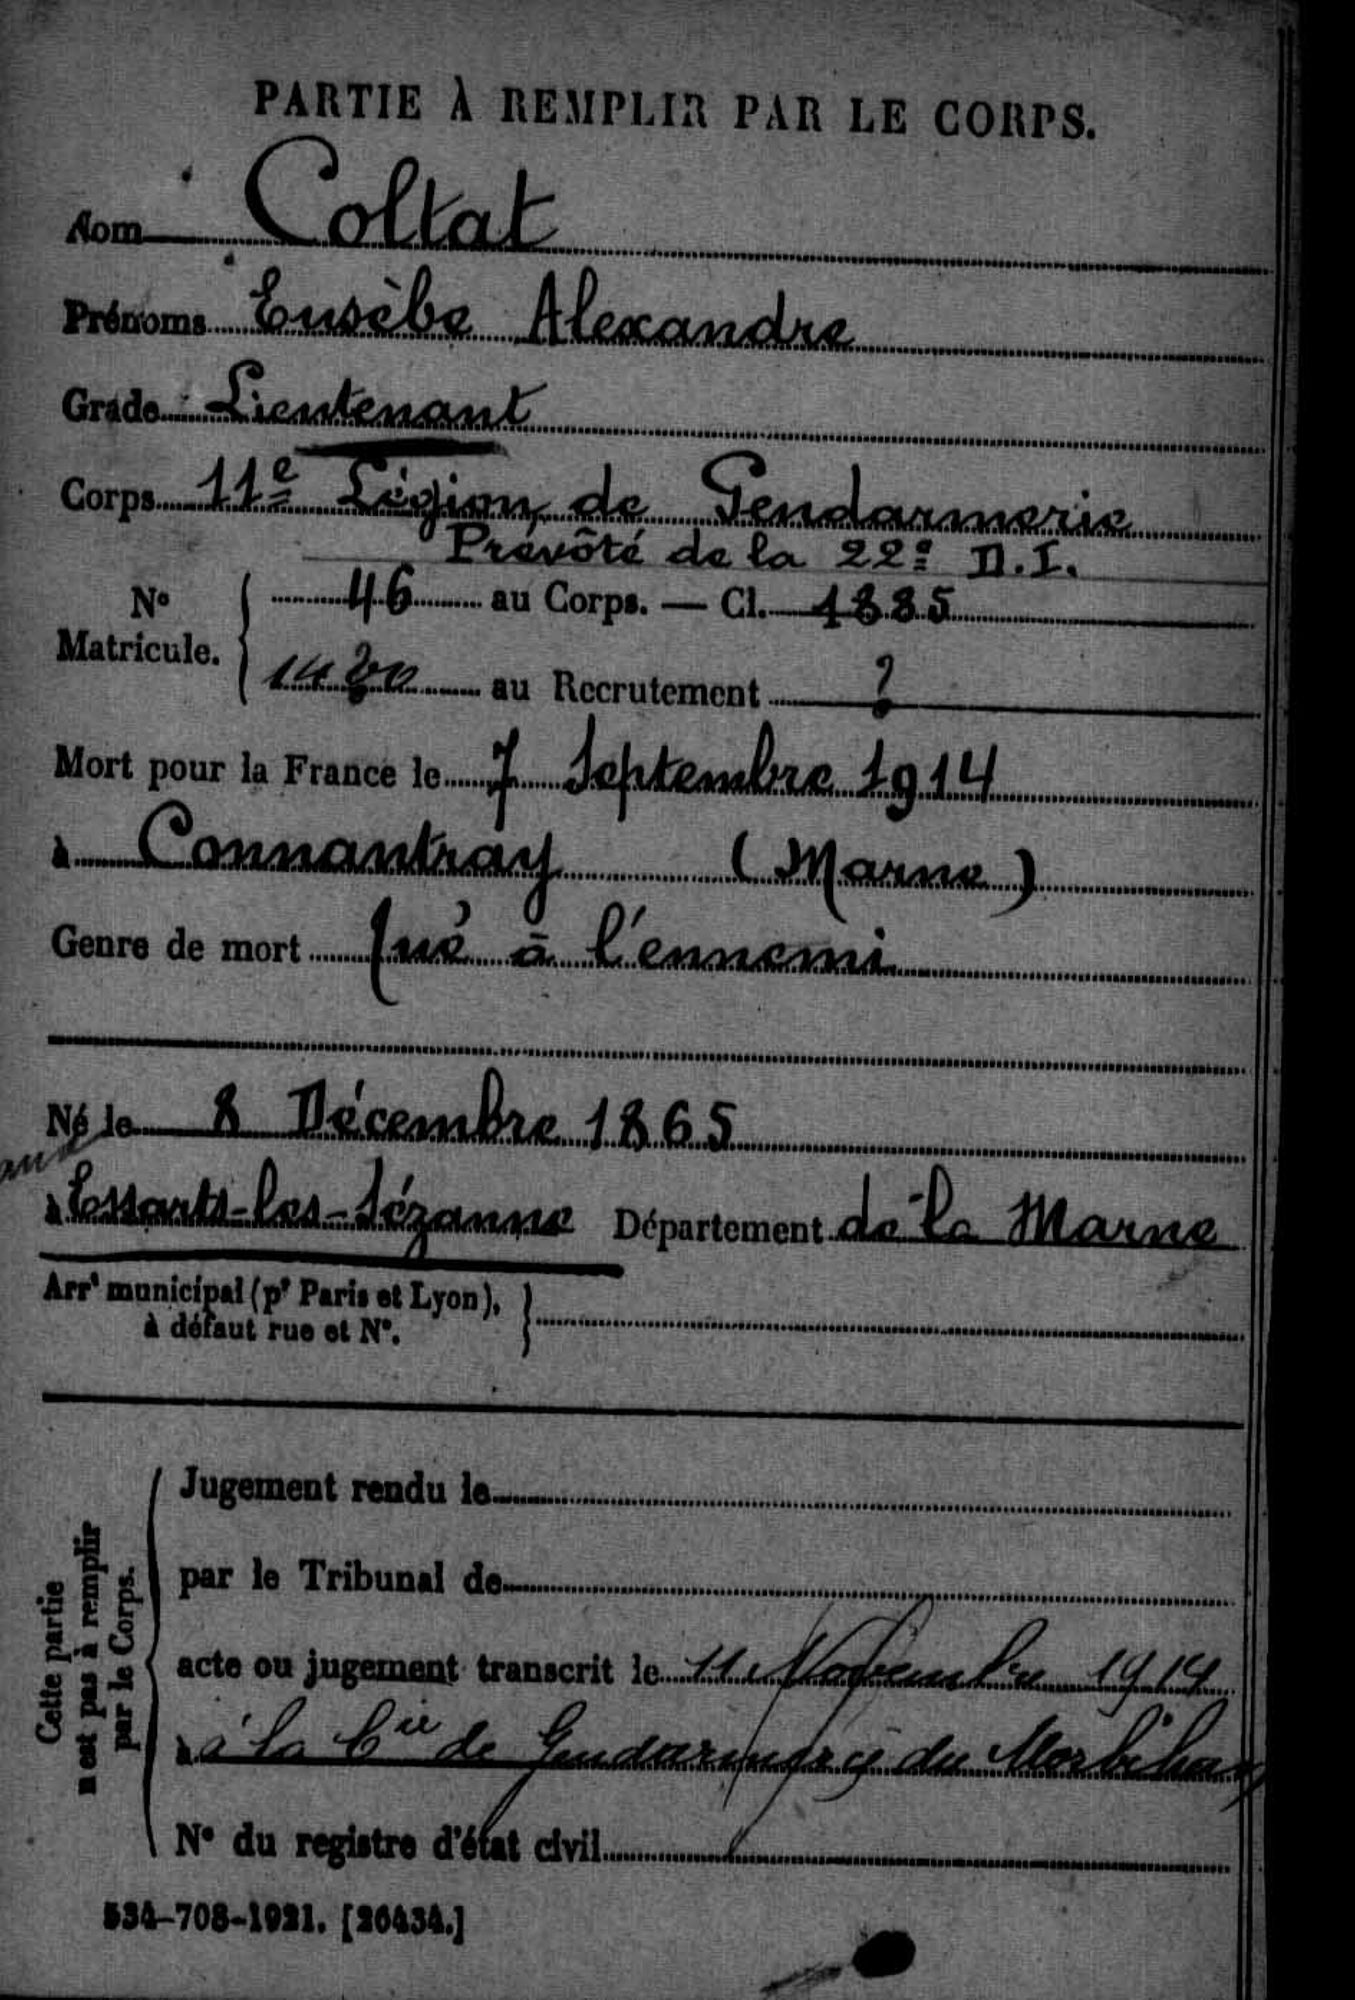 PARTIE À REMPLIR PAR LE CORPS.
Nom Coltat
Prénoms Eusèbe Alexandre
Grade Lieutenant
Corps 11e Légion de Gendarmerie
Prévôté de la 22e D.I.
No Matricule. 46 au Corps. — Cl. 1885
1480 au Recrutement ?
Mort pour la France le 7 Septembre 1914
à Connantray (Marne)
Genre de mort tué à l'ennemi
Né le 8 Décembre 1865
aux
à Essarts-les-Sézanne Département de la Marne
Arrt municipal (pr Paris et Lyon),
à défaut rue et No.
Cette partie
n'est pas à remplir
par le Corps.
Jugement rendu le
par le Tribunal de
acte ou jugement transcrit le 11 Novembre 1914
à à la Cie de Gendarmerie du Morbihan
No du registre d'état civil
534-708-1921. [26434.]